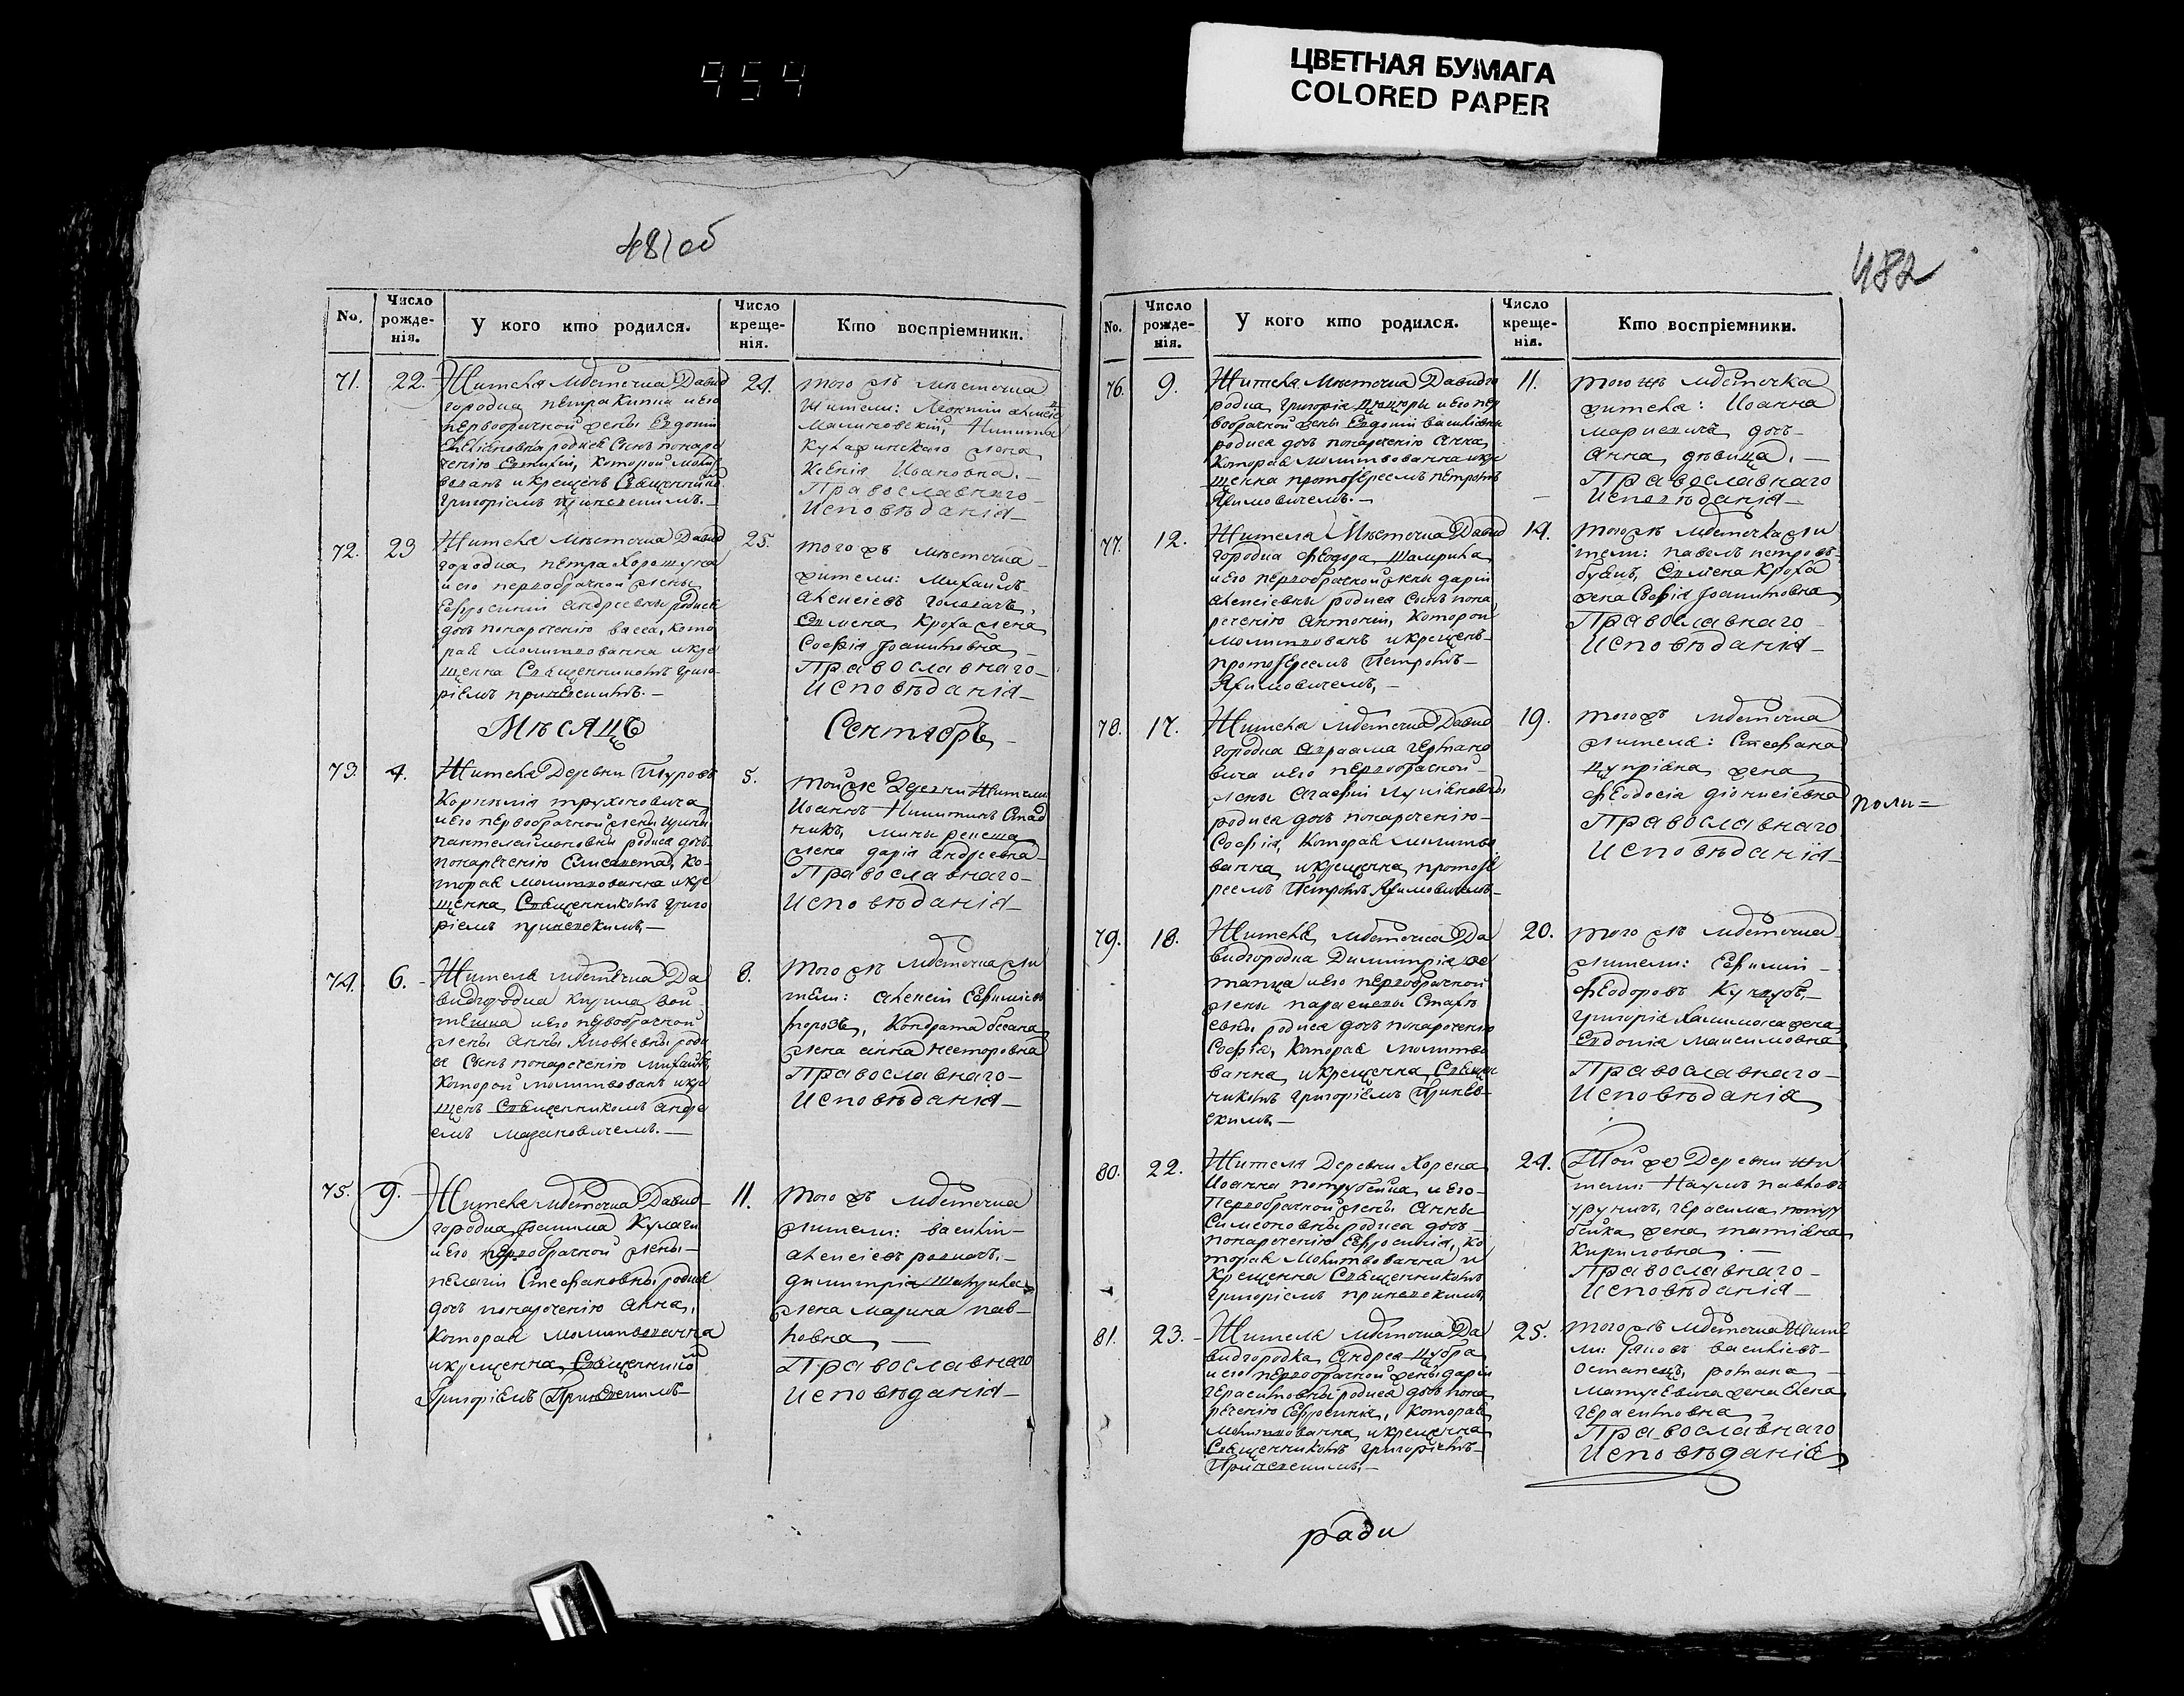 954
ЦВЕТНАЯ БУМАГА
COLORED PAPER
481об
No.
Число рожде-нія.
У кого кто родился.
Число креще-нія.
Кто воспріемники.
71.
22.
Жителя мѣсточка Давид
городка петра
первобрачной жены Евдокіи
родися Сынъ понаре
ченію Которой молит
вованъ икрещенъ Священник
григоріемъ
24.
того жъ мѣсточка
жители: Леонтій
Малиновскій, Никита
жена
Ксенія Ивановна. —
Православнаго —
Исповѣданія —
72.
23
Жителя мѣсточка Давид
городка, петра Хорошуна
иего первобрачной жены
Ефросиніи андреевны родися
дочь понареченію васса, кото
рая молитвованна икре
щенна Священникомъ григо
ріемъ —
25.
того жъ мѣсточка
жители: Михаилъ
алексіевъ головачъ,
Семена Кроха жена
Софія —
Православнаго —
Исповѣданія —
Мѣсяцъ
Сентябрь —
73.
4.
Жителя Деревни Туровъ
Корнилія труханавича
иего первобрачной жены
пантелеимоновны родися дочь
понареченію Елисавета, ко-
торая молитвованна икре
щенна Священникомъ григо
ріемъ —
5.
тойже Деревни жители
Иоаннъ Никитинъ Стад
никъ, мины
жена дарія андреевна
Православнаго —
Исповѣданія —
74.
6.
Жителя мѣсточка Да
видгородка вой
иего первобрачной
жены анны яковлевны роди
ся Сынъ понареченію михаилъ,
Которой молитвованъ икре
щенъ Священникомъ андре
емъ —
8.
того жъ мѣсточка жи
тели: алексій Ефиміевъ
морозъ, Кондрата бесана
жена анна несторовна
Православнаго —
Исповѣданія —
75.
9.
Жителя мѣсточка Давид-
городка Кулаги
иего первобрачной жены —
пелагіи Стефановны родися
дочь понареченію анна,
Которая молитвованна
икрещенна Священникомъ
Григоріемъ
11.
того жъ мѣсточка
жители: василій
алексіевъ —
димитрія
жена марина пав-
ловна —
Православнаго
Исповѣданія —
482
No.
Число рожде-нія.
У кого кто родился.
Число креще-нія.
Кто воспріемники.
76.
9.
Жителя Мѣсточка Давидго
родка Григорія иего пер
вобрачной жены Евдокіи василіевны
родися дочь понареченію анна
Которая молитвованна икре
щенна протоіереемъ петромъ
Якимовичемъ. —
11.
того жъ мѣсточка
жителя: Иоанна
дочь
анна, дѣвица. —
Православнаго
Исповѣданія —
77.
12.
Жителя Мѣсточка Давид
городка феодора Шаирика
иего первобрачной жены даріи
алексіевны родися Сынъ пона
реченію антоній, Которой
молитвованъ икрещенъ
протоіереемъ Петромъ —
Якимовичемъ, —
14.
того жъ мѣсточка жи
тели: павелъ петровъ
Семена Кроха
жена Софія
Православнаго —
Исповѣданія —
78.
17.
Жителя мѣсточка Давид
городка авраама германо
вича иего первобрачной —
жены агафіи Лукіановны
родися дочь понареченію —
Софія, Которая молитво
ванна, икрещенна протоіе
реемъ Петромъ Якимовичемъ —
19.
того жъ мѣсточка
жителя: Стефана
жена
феодосія діонисіевна
Православнаго
Исповѣданія —
поли=
79.
18.
Жителя мѣсточка Да
видгородка Димитрія ос
тапца иего первобрачной
жены параскевы
родися дочь понареченію
Софія, Которая молитво
ванна, икрещенна Священ
никомъ григоріемъ
20.
того жъ мѣсточка
жители: Ефимій —
феодоровъ —
григорія жена
Евдокія Максимовна
Православнаго —
Исповѣданія
80.
22.
Жителя Деревни Хорска
Иоанна иего —
Первобрачной жены анны
Симеоновны родися дочь
понареченію Ефросинія, ко
торая Молитвованна и
Крещенна Священникомъ
Григоріемъ
24.
Той же Деревни жи
тели: Наумъ павловъ
герасима
жена татіана
Кириловна —
Православнаго —
Исповѣданія —
81.
23.
Жителя мѣсточка Да
видгородка, андрея
иего первобрачной жены даріи
герасимовны родися дочь пона
реченію Ефросинія, Которая
молитвованна, икрещенна
Священникомъ григоріемъ
25.
того жъ мѣсточка жите
ли: Яковъ василіевъ —
остапецъ, романа —
жена Елена
герасимовна
Православнаго
Исповѣданія
ради